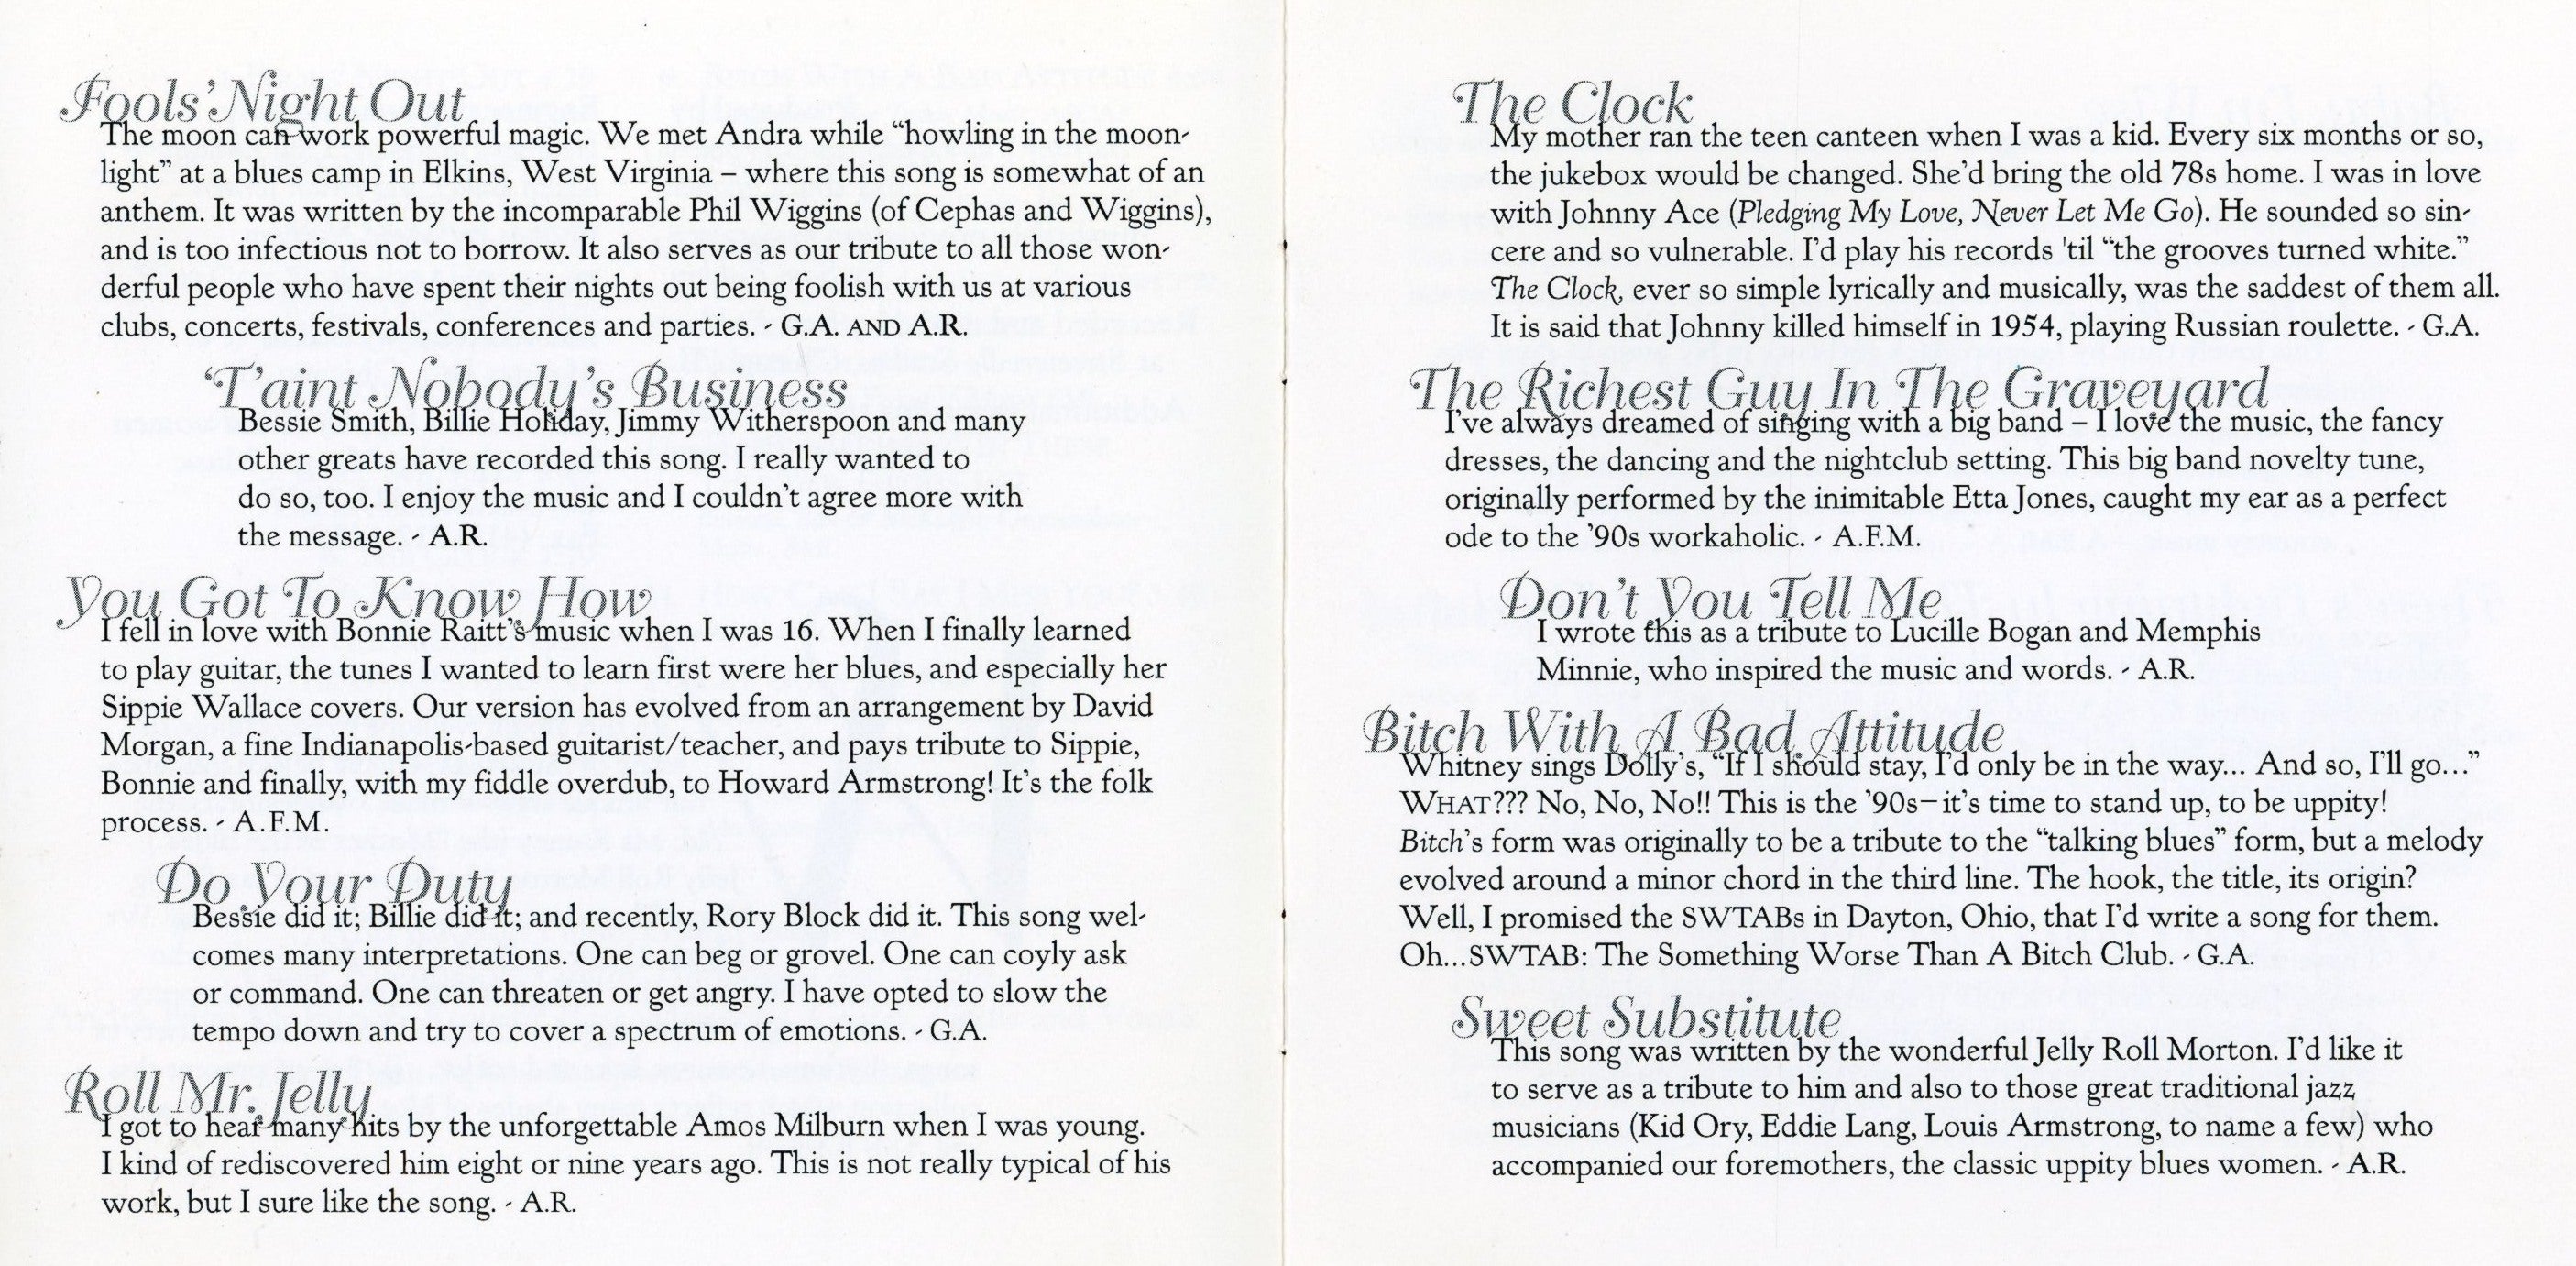 Fools' Night Out
The moon can work powerful magic. We met Andra while “howling in the moon-
light” at a blues camp in Elkins, West Virginia – where this song is somewhat of an
anthem. It was written by the incomparable Phil Wiggins (of Cephas and Wiggins),
and is too infectious not to borrow. It also serves as our tribute to all those won-
derful people who have spent their nights out being foolish with us at various
clubs, concerts, festivals, conferences and parties. - G.A. AND A.R.
‘T’aint Nobody’s Business
Bessie Smith, Billie Holiday, Jimmy Witherspoon and many
other greats have recorded this song. I really wanted to
do so, too. I enjoy the music and I couldn’t agree more with
the message. - A.R.
You Got To Know How
I fell in love with Bonnie Raitt’s music when I was 16. When I finally learned
to play guitar, the tunes I wanted to learn first were her blues, and especially her
Sippie Wallace covers. Our version has evolved from an arrangement by David
Morgan, a fine Indianapolis-based guitarist/teacher, and pays tribute to Sippie,
Bonnie and finally, with my fiddle overdub, to Howard Armstrong! It’s the folk
process. - A.F.M.
Do Your Duty
Bessie did it; Billie did it; and recently, Rory Block did it. This song wel-
comes many interpretations. One can beg or grovel. One can coyly ask
or command. One can threaten or get angry. I have opted to slow the
tempo down and try to cover a spectrum of emotions. - G.A.
Roll Mr. Jelly
I got to hear many hits by the unforgettable Amos Milburn when I was young.
I kind of rediscovered him eight or nine years ago. This is not really typical of his
work, but I sure like the song. - A.R.
The Clock
My mother ran the teen canteen when I was a kid. Every six months or so,
the jukebox would be changed. She’d bring the old 78s home. I was in love
with Johnny Ace (Pledging My Love, Never Let Me Go). He sounded so sin-
cere and so vulnerable. I’d play his records 'til “the grooves turned white.”
The Clock, ever so simple lyrically and musically, was the saddest of them all.
It is said that Johnny killed himself in 1954, playing Russian roulette. - G.A.
The Richest Guy In The Graveyard
I’ve always dreamed of singing with a big band – I love the music, the fancy
dresses, the dancing and the nightclub setting. This big band novelty tune,
originally performed by the inimitable Etta Jones, caught my ear as a perfect
ode to the ’90s workaholic. - A.F.M.
Don’t You Tell Me
I wrote this as a tribute to Lucille Bogan and Memphis
Minnie, who inspired the music and words. - A.R.
Bitch With A Bad Attitude
Whitney sings Dolly’s, “If I should stay, I’d only be in the way... And so, I’ll go...”
WHAT??? No, No, No!! This is the ’90s–it’s time to stand up, to be uppity!
Bitch’s form was originally to be a tribute to the “talking blues” form, but a melody
evolved around a minor chord in the third line. The hook, the title, its origin?
Well, I promised the SWTABs in Dayton, Ohio, that I’d write a song for them.
Oh...SWTAB: The Something Worse Than A Bitch Club. - G.A.
Sweet Substitute
This song was written by the wonderful Jelly Roll Morton. I’d like it
to serve as a tribute to him and also to those great traditional jazz
musicians (Kid Ory, Eddie Lang, Louis Armstrong, to name a few) who
accompanied our foremothers, the classic uppity blues women. - A.R.